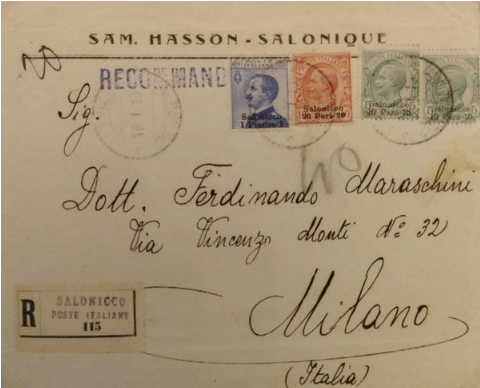 SAM. HASSON - SALONIQUE
20
RECOMMAND
Salonicco
1 Piastra 1
Salonicco
20 Para 20
Salonicco
10 Para 10
10 Para 10
40
Sig.
Dott. Ferdinando Maraschini
Via Vincenzo Monti Nº 32
R
SALONICCO
POSTE ITALIANE
115
Milano
(Italia)